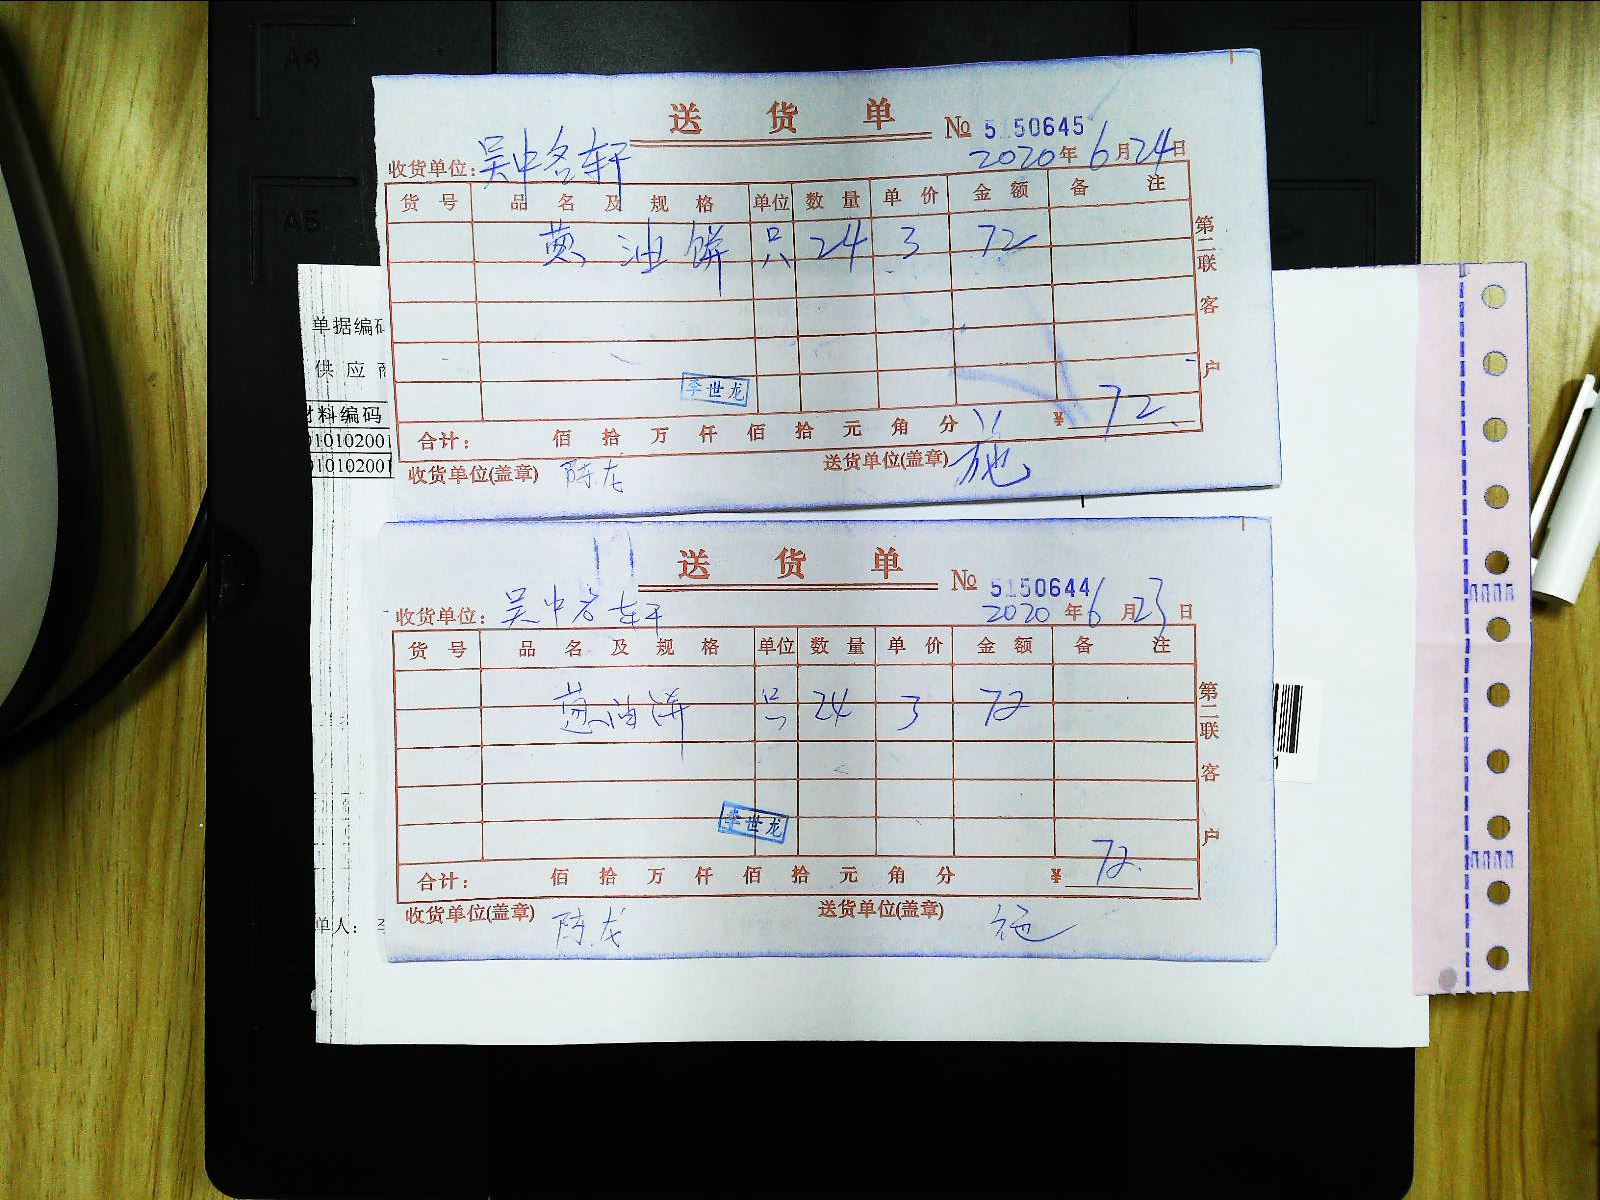 A4
A5
送货单
№ 5150645
收货单位：吴中名轩
2020年6月24日
货号 品名及规格 单位 数量 单价 金额 备注
葱油饼 只 24 3 72
第二联 客户
李世龙
合计： 佰拾万仟佰拾元角分 ¥ 72
收货单位(盖章) 陈龙 送货单位(盖章) 施
单据编码
供应商
材料编码
010102001
010102001
送货单
№ 5150644
收货单位：吴中名轩
2020年6月23日
货号 品名及规格 单位 数量 单价 金额 备注
葱油饼 只 24 3 72
第二联 客户
李世龙
合计： 佰拾万仟佰拾元角分 ¥ 72
收货单位(盖章) 陈龙 送货单位(盖章)
单人：
1